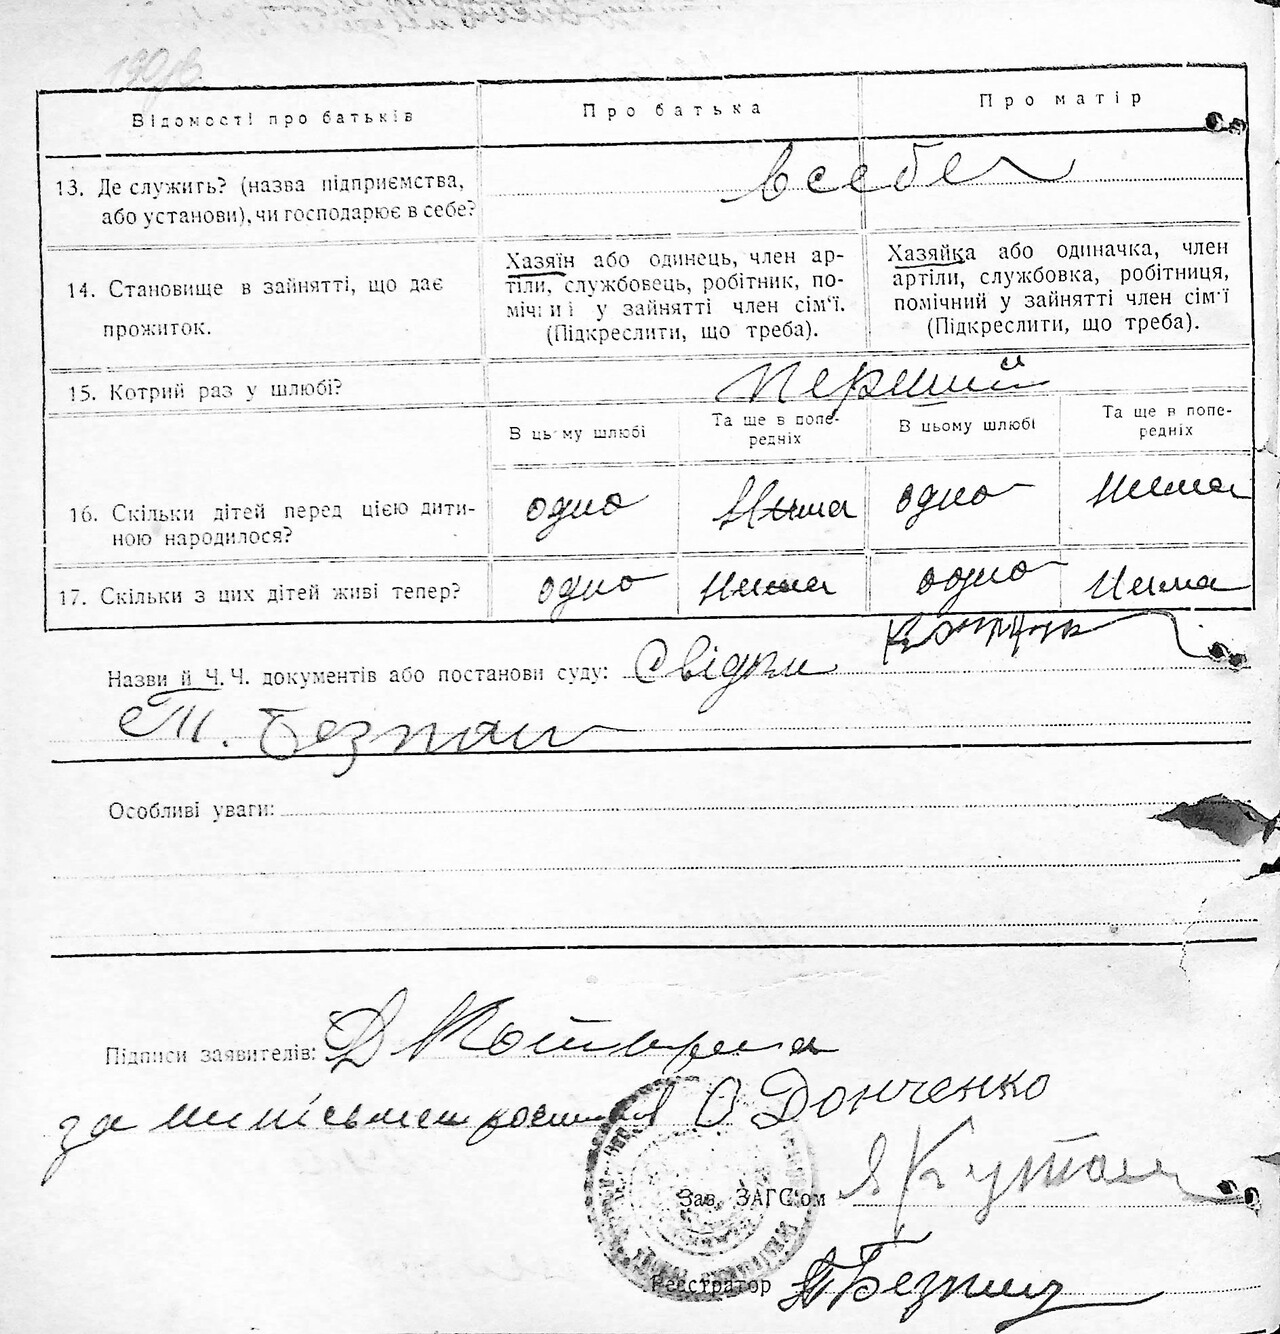 Відомості про батьків
Про батька
Про матір
13. Де служить? (назва підприємства,
або установи), чи господарює в себе?
в себе
14. Становище в зайнятті, що дає
прожиток.
Хазяїн або одинець, член ар-
тіли, службовець, робітник, по-
мічний у зайнятті член сім'ї.
(Підкреслити, що треба).
Хазяйка або одиначка, член
артіли, службовка, робітниця,
помічний у зайнятті член сім'ї
(Підкреслити, що треба).
15. Котрий раз у шлюбі?
перший
В цьому шлюбі
Та ще в попе-
редніх
В цьому шлюбі
Та ще в попе-
редніх
16. Скільки дітей перед цією дити-
ною народилося?
одно
Нима
одно
Нима
17. Скільки з цих дітей живі тепер?
одно
Нима
одно
Нима
Назви й Ч.Ч. документів або постанови суду: Свідки
Особливі уваги:
Підписи заявителів: Д
за О Донченко
Зав. ЗАГС'ом
Реєстратор